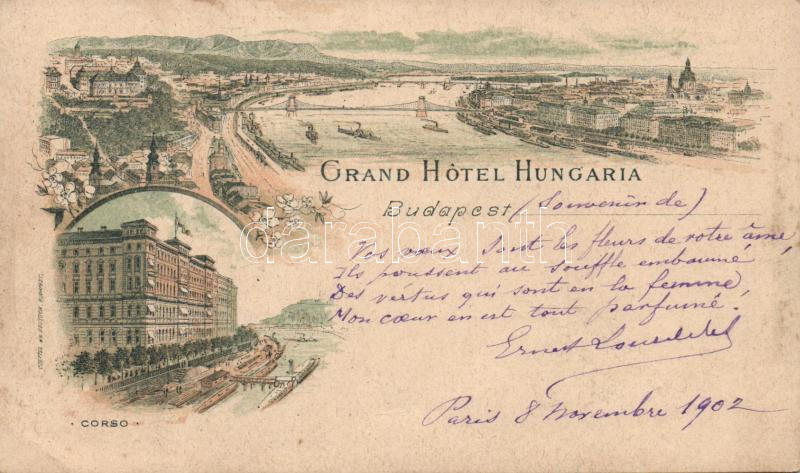 GRAND HÔTEL HUNGARIA
Budapest (Souvenir de)
Vos vœux sont les fleurs de votre âme,
Ils poussent au souffle embaumé
Des vertus qui sont en la femme,
Mon cœur en est tout parfumé.
Ernest
Paris 8 novembre 1902
· CORSO ·
darabanth